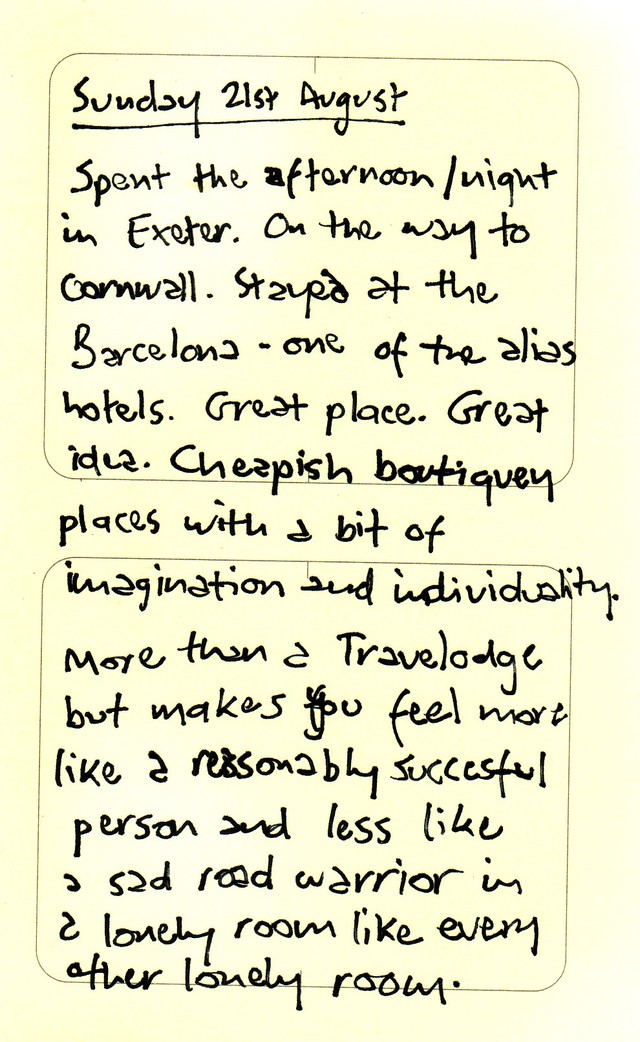 Sunday 21st August
Spent the afternoon/night
in Exeter. On the way to
Cornwall. Stayed at the
Barcelona - one of the alias
hotels. Great place. Great
idea. Cheapish boutiquey
places with a bit of
imagination and individuality.
More than a Travelodge
but makes you feel more
like a reasonably succesful
person and less like
a sad road warrior in
a lonely room like every
other lonely room.